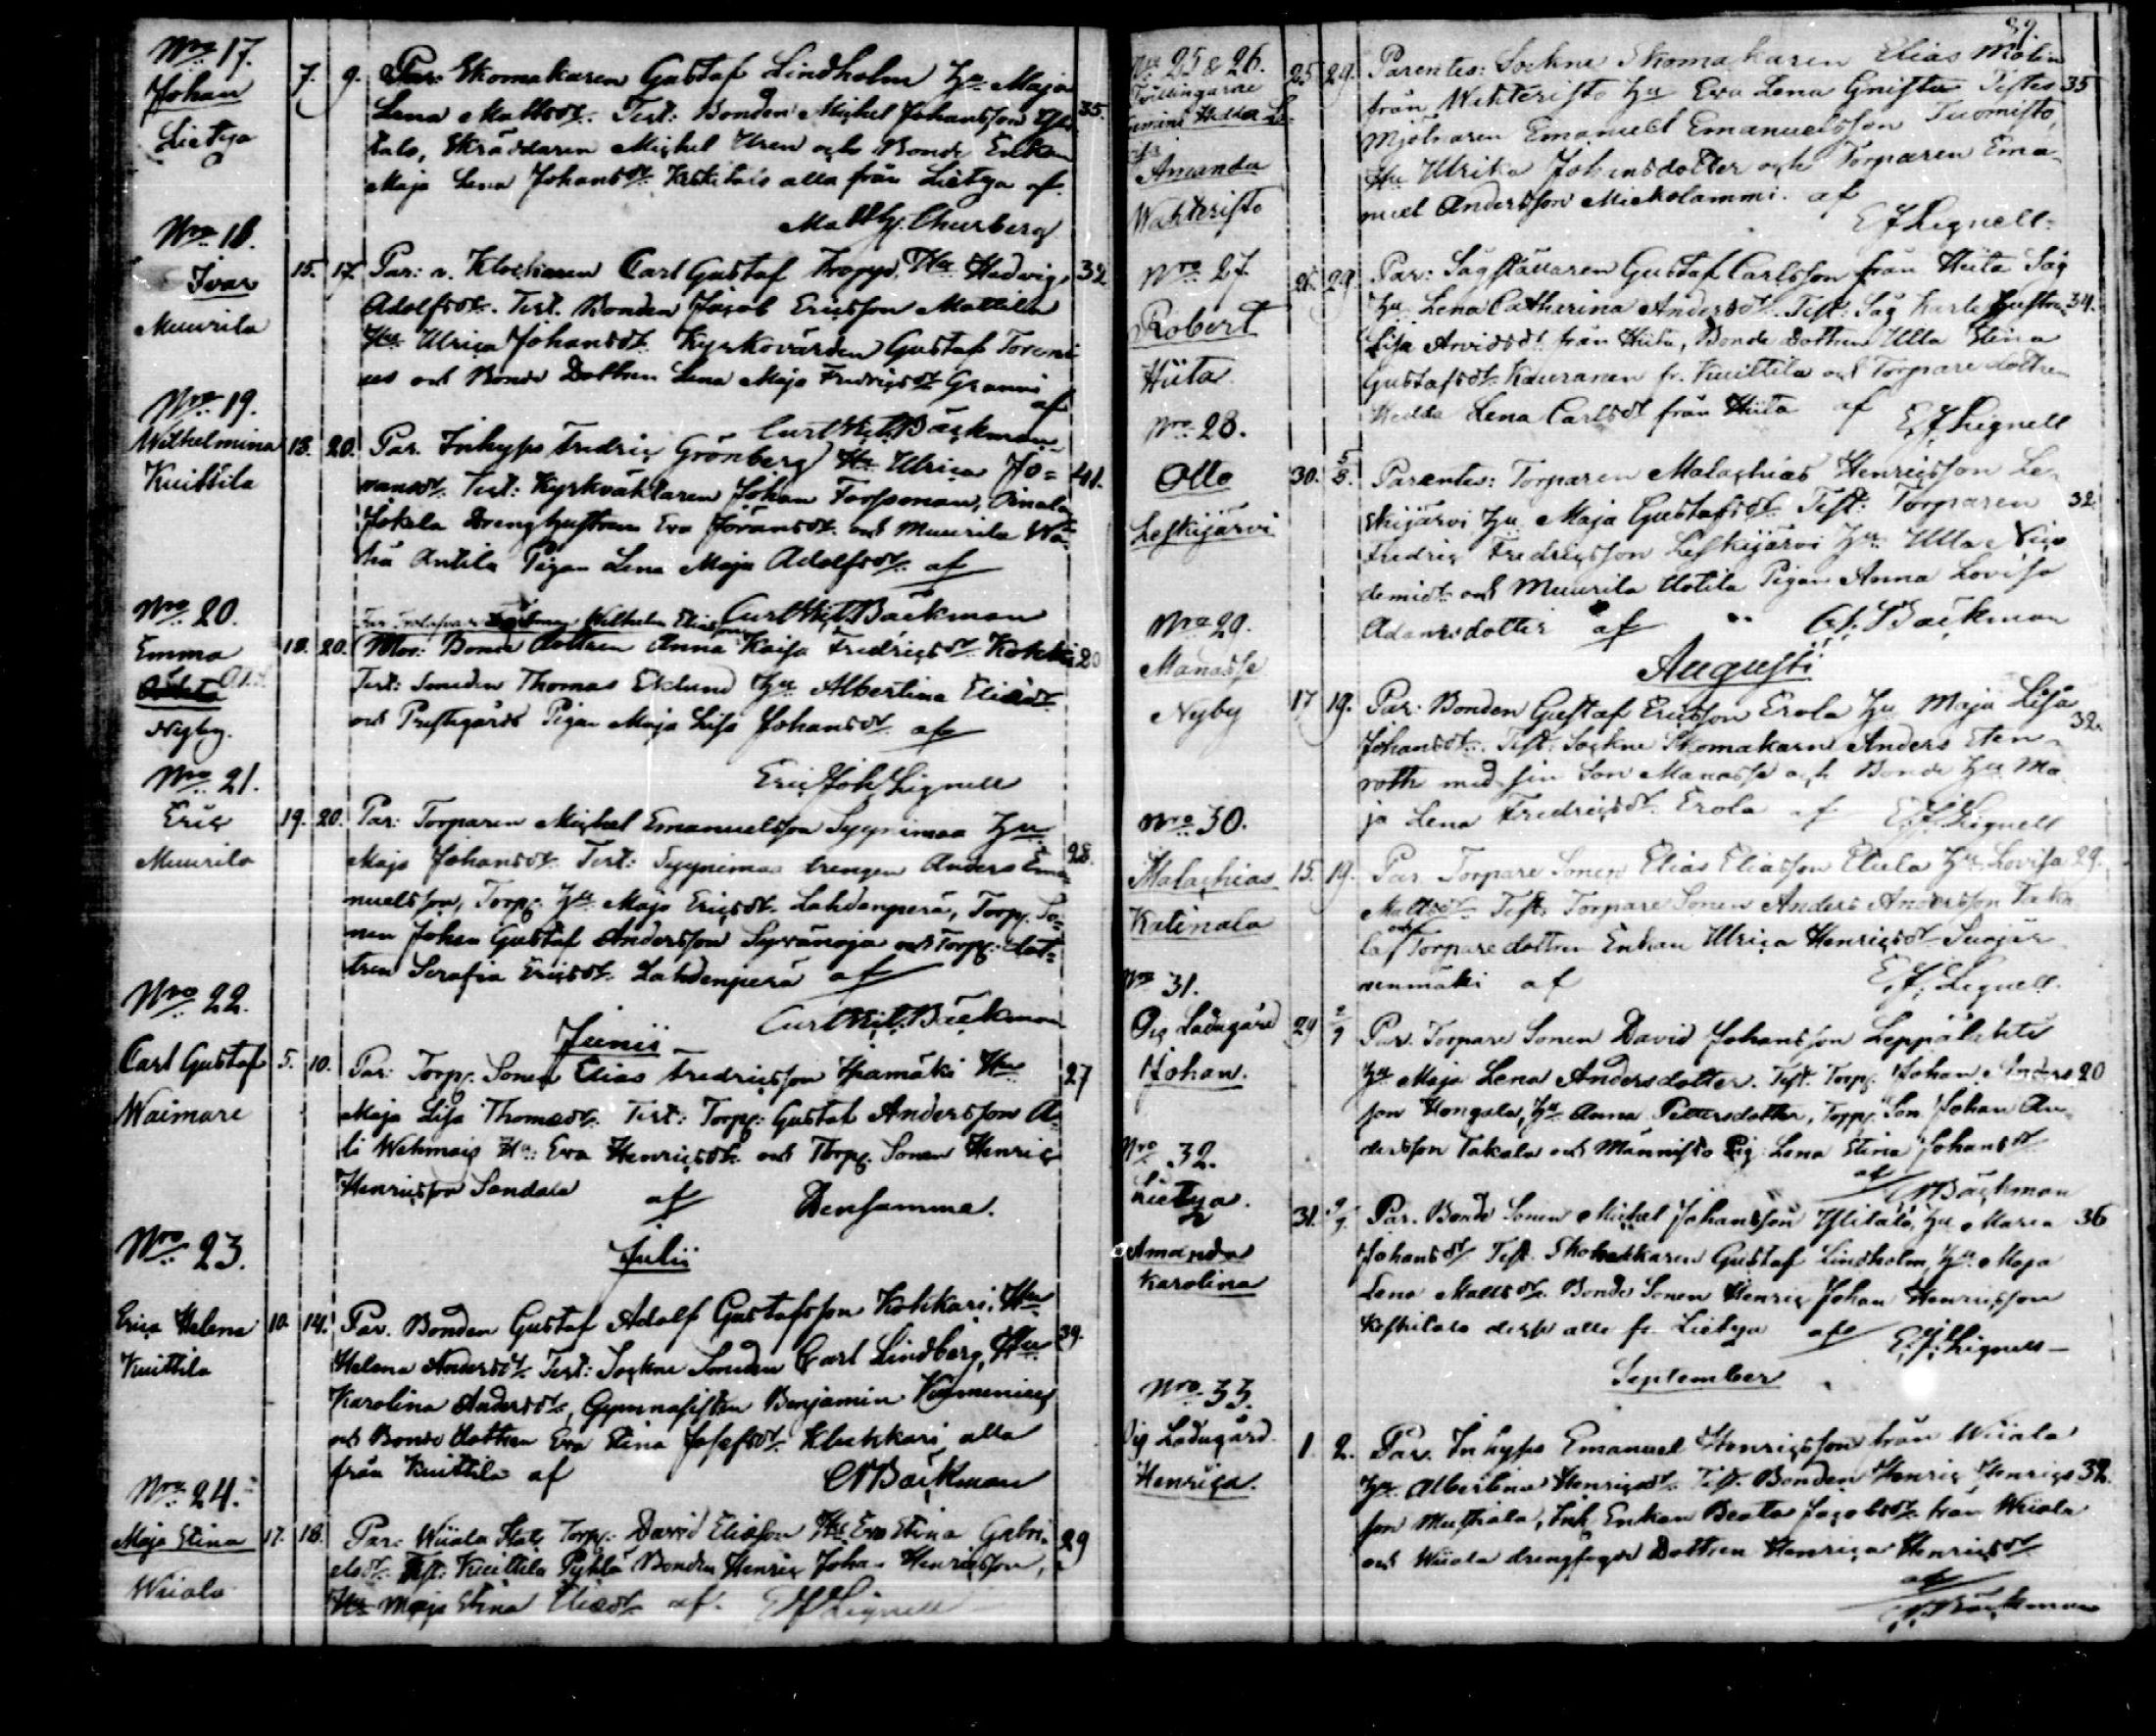 Nro 17.
Johan
Lietza
7. 9. Par: Skomakaren Gustaf Lindholm Hu Maja 35.
Lena Mattsdr. Test: Bonden Michel Johansson Yli
talo, Skräddaren Michel Uren och Bonde Enkan
Maja Lena Johansdr. Keskitalo alla från Lietza af
Matth. Churberg
Nro 18.
Ivar
Muurila
15. 17. Par: v. Klockaren Carl Gustaf Hu Hedvig 32
Adolfsdr. Test. Bonden Jacob Ericsson Mattila
Hu Ulrica Johansdr. Kyrkovärden Gustaf
och Bonde Dottren Lena Maja Fredricsdr Granni
af
Curt Wil. Bäckman
Nro 19.
Wilhelmina
Kuittila
18. 20. Par. Inhyses Fredric Grönberg Hu Ulrica Jö= 41.
ransdr. Test: Kyrkväktaren Johan
Jokela Drenghustrun Eva Jöransdr. och Muurila
Antila Pigan Lena Maja Adolfsdr. af
Curt Wil. Bäckman
Nro 20.
Emma
Nyby.
Wilhelm Eliasson
18. 20. Mor: Bonde dottren Anna Kaisa Fredricsdr. Kokki 20
Test: Smeden Thomas Eklund Hu Albertina Eliædr.
och Prestegårds Pigan Maja Lisa Johansdr. af
Eric Joh. Lignell
Nro 21.
Eric
Muurila
19. 20. Par: Torparen Michel Emanuelsson Syynimaa Hu
Maja Johansdr. Test: Syynimaa drengen Anders Ema= 28.
nuelsson, Torp: Hu Maja Ericsdr. Lahdenperä, Torp. So=
nen Johan Gustaf Andersson Syvänoja och Torp: dot=
tren Serafia Ericsdr. Lahdenperä af
Curt Wil. Bäckman
Junii
Nro 22.
Carl Gustaf
Waimare
5. 10. Par: Torp. Sonen Elias Fredricsson Hu 27
Maja Lisa Thomædr. Test: Torp: Gustaf Andersson A=
li Wehmais Hu: Eva Henricsdr. och Torp. Sonen Henric
Henricsson Sandala af Densamme.
Julii
Nro 23.
Erica Helena
Kuittila
10. 14. Par. Bonden Gustaf Adolf Gustafsson Kohkari, Hu 39.
Helena Andersdr. Test: Sockne Smeden Carl Lindberg, Hu
Karolina Andersdr, Gymnasisten Benjamin
och Bonde dottren Eva Stina Josefsdr. alla
från Kuittila af CWBäckman
Nro 24.
Maja Stina
Wiiala
17. 18. Par: Wiiala Torp: David Eliasson Hu Eva Stina Gabri= 29
elsdr. Test: Kuittila Pyhlä Bonden Henric Johan Henricsson,
Hu Maja Stina Eliædr. af. EJLignell
89.
Nro 25 & 26.
Tvillingarne
Hedda
Amanda
Wahteristo
25 29. Parentes: Sockne Skomakaren Elias Molin
från Wahteristo Hu Eva Lena Gnista Testes 35
Mjölnaren Emanuel Emanuelsson Tuomisto,
Hu Ulrika Johansdotter och Torparen Ema=
nuel Andersson Mickolammi. af
E J Lignell.
Nro 27.
Robert
Hiita
29. Par: Sågställaren Gustaf Carlsson från Hiita Såg
Hu Lena Catharina Andersdr. Test: Såg Karls hustru 34.
Lisa Arvidsdr. från Hiita, Bonde Dottren Ulla Stina
Gustafsdr. Kauranen fr. Kuittila och Torpare dottren
Hedda Lena Carlsdr från Hiita af E J Lignell
Nro 28.
Otto
Leskijärvi
30. 5/8. Parentes: Torparen Malachias Henricsson Le=
skijärvi Hu Maja Gustafsdr. Test: Torparen 32
Fredric Fredricsson Leskijärvi Hu Ulla Nico
demidr. och Muurila Uotila Pigan Anna Lovisa
Adamsdotter af CWBäckman
Augusti
Nro 29.
Manasse
Nyby
17 19. Par: Bonden Gustaf Ericsson Erola Hu Maja Lisa 32.
Johansdr. Test: Sockne Skomakarn Anders Sten=
roth med sin Son Manasse och Bonde Hu Ma
ja Lena Fredricsdr. Erola af E.J. Lignell
Nro 30.
Malachias
Katinala
15. 19. Par. Torpare Sonen Elias Eliasson Eliula Hu Lovisa 29.
Mattsdr. Test: Torpare Sonen Anders Andersson Taka
la och Torpare dottren Enkan Ulrica Henricsdr.
af E.J. Lignell.
Nro 31.
Ladugård
Johan.
29 2/9 Par. Torpare Sonen David Johansson Leppälahti
Hu Maja Lena Andersdotter. Test. Torp. Johan Anders 20
son Hongola, Hu Anna Pettersdotter, Torp: Son Johan An=
dersson Takala och Männistö Pig: Lena Stina Johansdr
af CWBäckman
Nro 32.
Lietza.
Amanda
Karolina
31. 9/9. Par. Bonde Sonen Michel Johansson Ylitalo, Hu Maria 36
Johansdr Test. Skomakaren Gustaf Lindholm, Hu Maja
Lena Mattsdr. Bonde Sonen Henric Johan Henricsson
Keskitalo desse alla fr. Lietza af E.J. Lignell
September
Nro 33.
Ladugård
Henrica.
1. 2. Par. Inhyses Emanuel Henricsson från Wiiala
Hu Albertina Henricsdr. Test. Bonden Henric Henrics 32.
son Muthiala, Inh. Enkan Beata Jacobsdr. från Wiiala
och Wiiala Dottren Henrica Henricsdr
af
CWBäckman